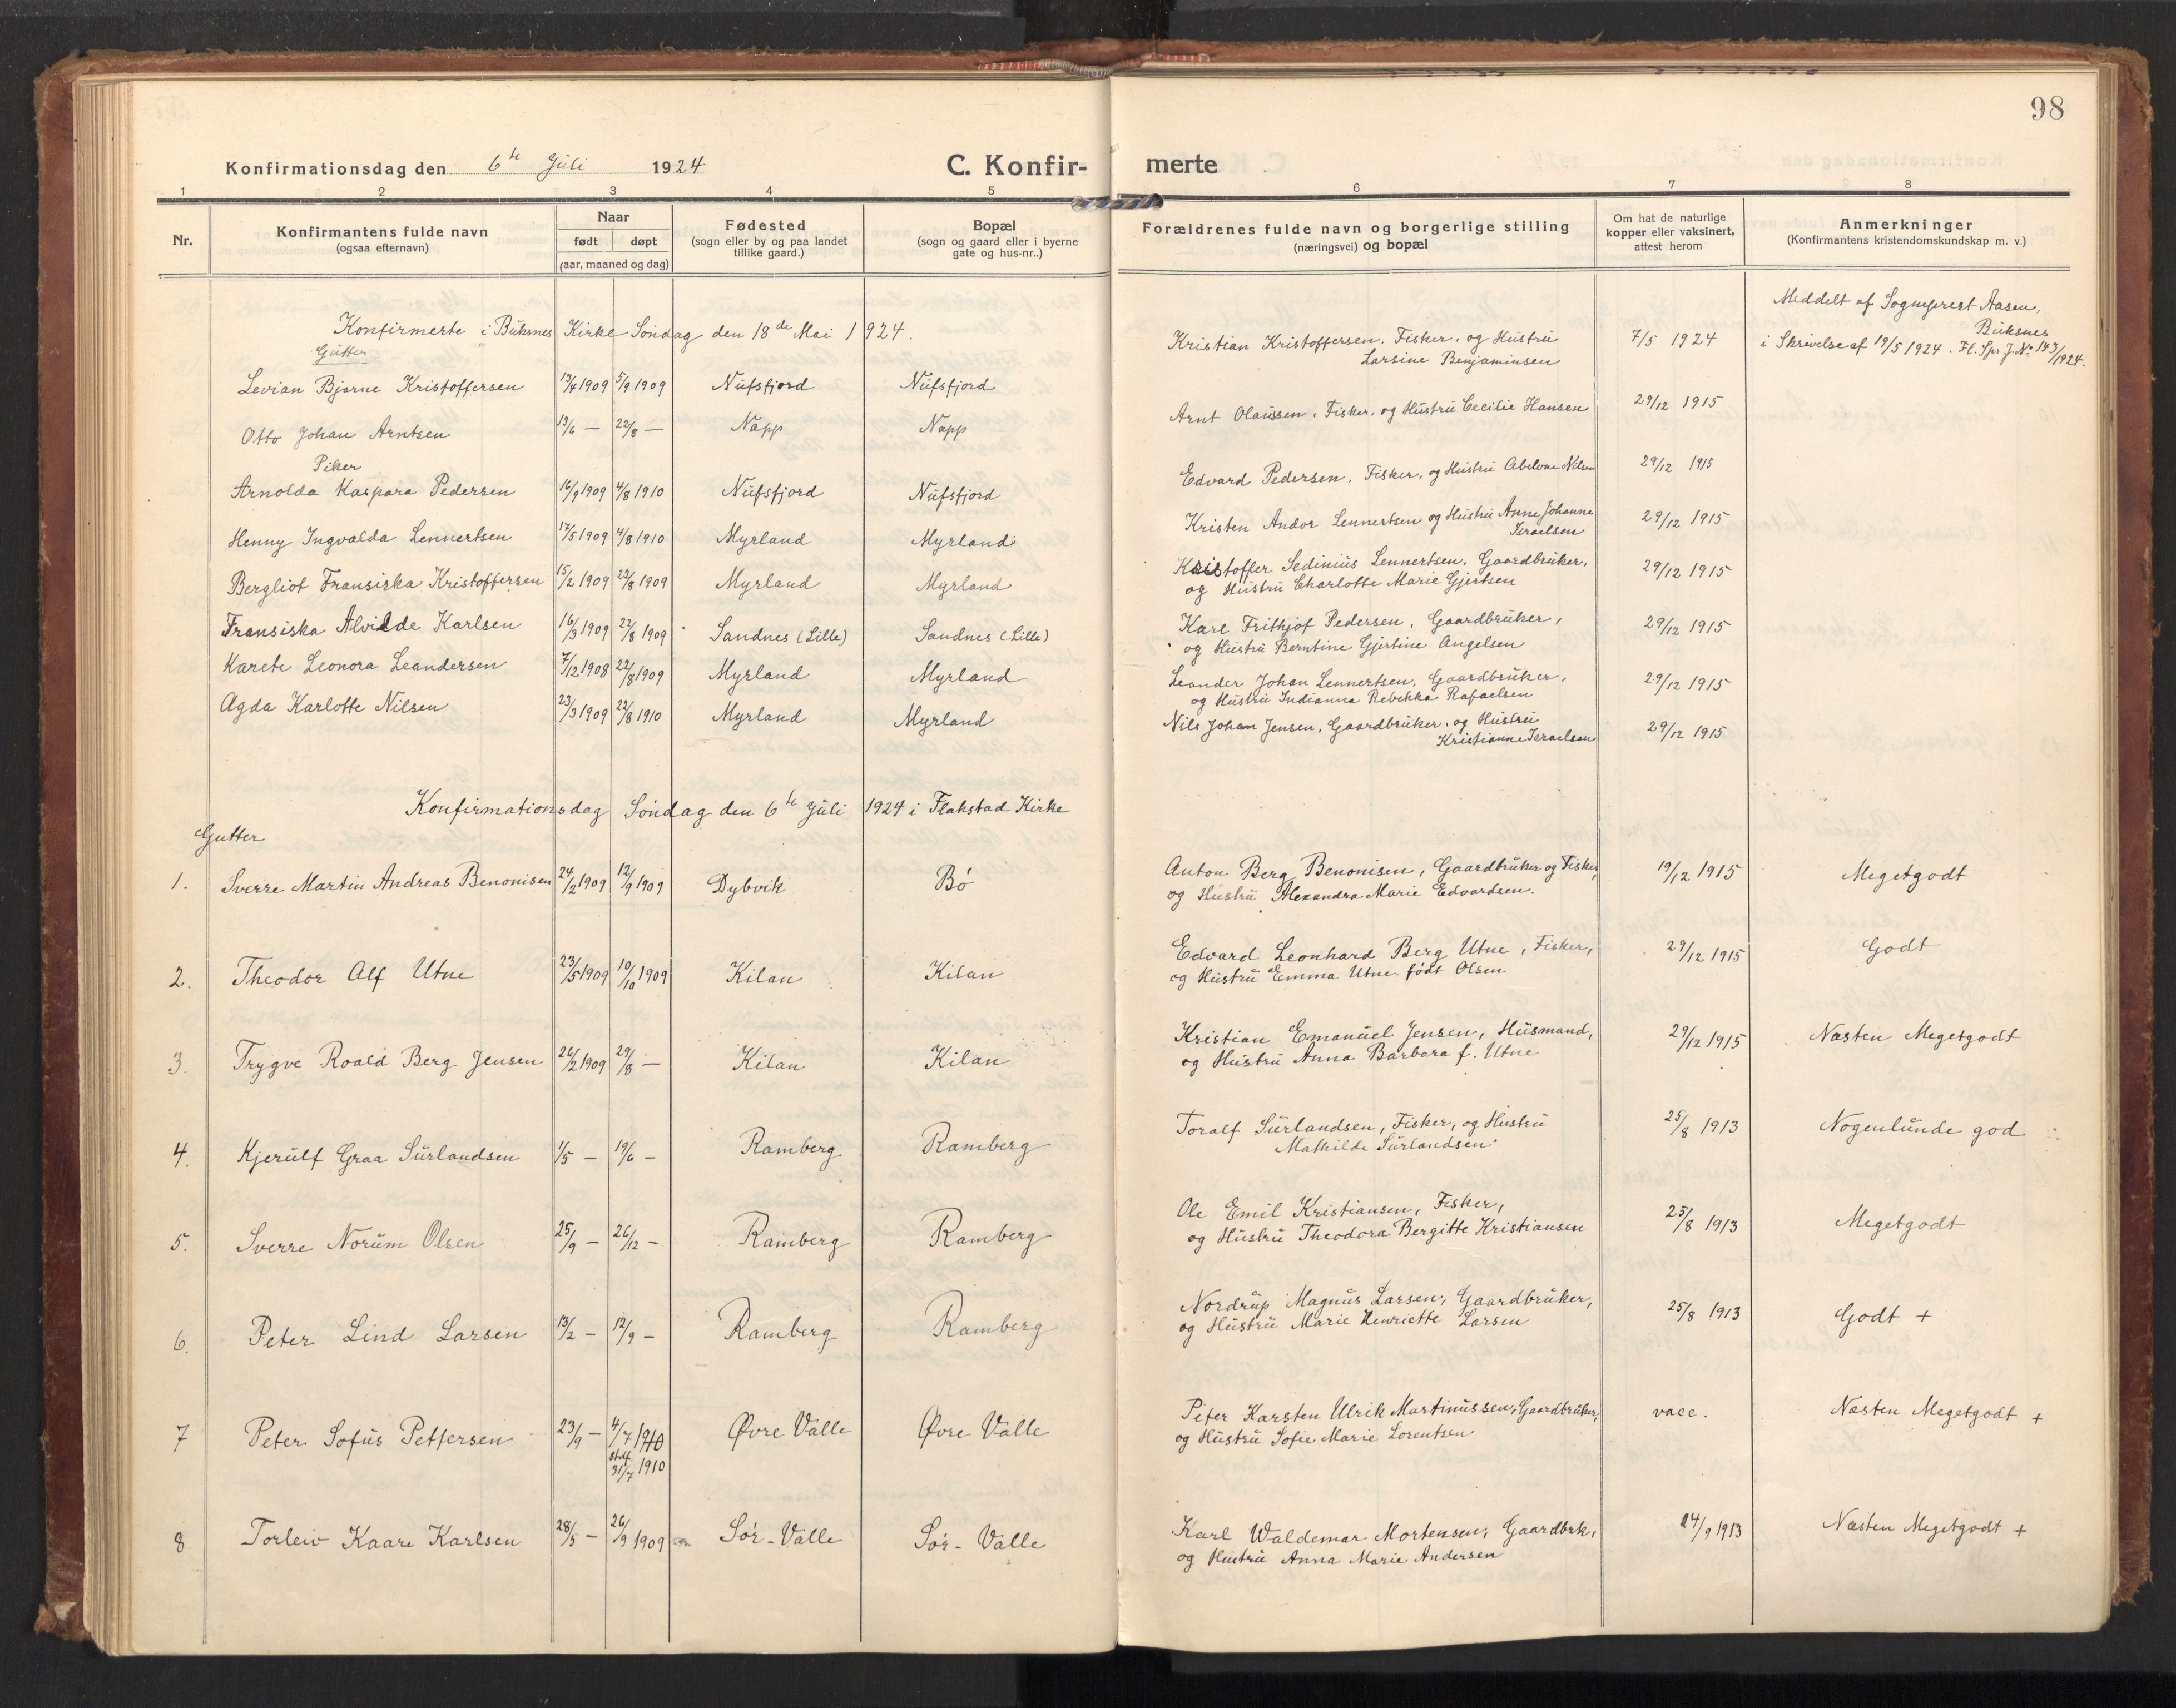 98
Konfirmationsdag den 6te Juli 1924 C. Konfir- merte
1 2 3 4 5 6 7 8
Nr.
Konfirmantens fulde navn
(ogsaa efternavn)
Naar
født døpt
(aar, maaned og dag)
Fødested
(sogn eller by og paa landet
tillike gaard.)
Bopæl
(sogn og gaard eller i byerne
gate og hus-nr..)
Forældrenes fulde navn og borgerlige stilling
(næringsvei) og bopæl
Om hat de naturlige
kopper eller vaksinert,
attest herom
Anmerkninger
(Konfirmantens kristendomskundskap m. v.)
Konfirmerte i Buksnes Kirke Søndag den 18de Mai 1924.
Gutter
Levian Bjarne Kristoffersen 13/4 1909 5/9 1909 Nufsfjord Nufsfjord
Kristian Kristoffersen, Fisker, og Hustru
Larsine Benjaminsen
7/5 1924
Meddelt af Sogneprest Aasen,
Buksnes
i Skrivelse af 19/5 1924. Fl. Spr. J. No 143/1924.
Otto Johan Arntsen 13/6 — 22/8 — Napp Napp
Arnt Olaussen, Fisker, og Hustru Cecilie Hansen 29/12 1915
Piker
Arnolda Kaspara Pedersen 16/9 1909 4/8 1910 Nufsfjord Nufsfjord
Edvard Pedersen, Fisker, og Hustru Abelone Nilsen 29/12 1915
Henny Ingvalda Lennertsen 17/5 1909 4/8 1910 Myrland Myrland
Kristen Andor Lennertsen og Hustru Anne Johanne
Israelsen
29/12 1915
Bergliot Fransiska Kristoffersen 15/2 1909 22/8 1909 Myrland Myrland
Kristoffer Sedinius Lennertsen, Gaardbruker,
og Hustru Charlotte Marie Gjertsen
29/12 1915
Fransiska Alvilde Karlsen 16/3 1909 22/8 1909 Sandnes (Lille) Sandnes (Lille)
Karl Frithjof Pedersen, Gaardbruker,
og Hustru Berntine Gjertine Angelsen
29/12 1915
Karete Leonora Leandersen 7/12 1908 22/8 1909 Myrland Myrland
Leander Johan Lennertsen, Gaardbruker,
og Hustru Indianna Rebekka Rafaelsen
29/12 1915
Agda Karlotte Nilsen 23/3 1909 22/8 1910 Myrland Myrland
Nils Johan Jensen, Gaardbruker, og Hustru
Kristianne Israelsen
29/12 1915
Konfirmationsdag Søndag den 6te Juli 1924 i Flakstad Kirke
Gutter
1. Sverre Martin Andreas Benonisen 24/2 1909 12/9 1909 Dybvik Bø
Anton Berg Benonisen, Gaardbruker og Fisker,
og Hustru Alexandra Marie Edvardsen.
19/12 1915 Megetgodt
2. Theodor Alf Utne 23/5 1909 10/10 1909 Kilan Kilan
Edvard Leonhard Berg Utne, Fisker,
og Hustru Emma Utne født Olsen
29/12 1915 Godt
3. Trygve Roald Berg Jensen 26/2 1909 29/8 — Kilan Kilan
Kristian Emanuel Jensen, Husmand,
og Hustru Anna Barbara f. Utne
29/12 1915 Næsten Megetgodt
4. Kjerulf Graa Surlandsen 1/5 — 19/6 — Ramberg Ramberg
Toralf Surlandsen, Fisker, og Hustru
Mathilde Surlandsen
25/8 1913 Nogenlunde god
5. Sverre Norum Olsen 25/9 — 26/12 — Ramberg Ramberg
Ole Emil Kristiansen, Fisker,
og Hustru Theodora Bergitte Kristiansen
25/8 1913 Megetgodt
6. Peter Lind Larsen 13/2 — 12/9 — Ramberg Ramberg
Nordrup Magnus Larsen, Gaardbruker,
og Hustru Marie Henriette Larsen
25/8 1913 Godt +
7 Peter Sofus Pettersen 23/9 — 4/7 1910 Øvre Valle Øvre Valle
stdf.
31/7 1910
Peter Karsten Ulrik Martinussen, Gaardbruker,
og Hustru Sofie Marie Lorentsen
vacc. Næsten Megetgodt +
8 Torleiv Kaare Karlsen 28/5 — 26/9 1909 Sør-Valle Sør-Valle
Karl Waldemar Mortensen, Gaardbrk,
og Hustru Anna Marie Andersen
24/9 1913 Næsten Megetgodt +